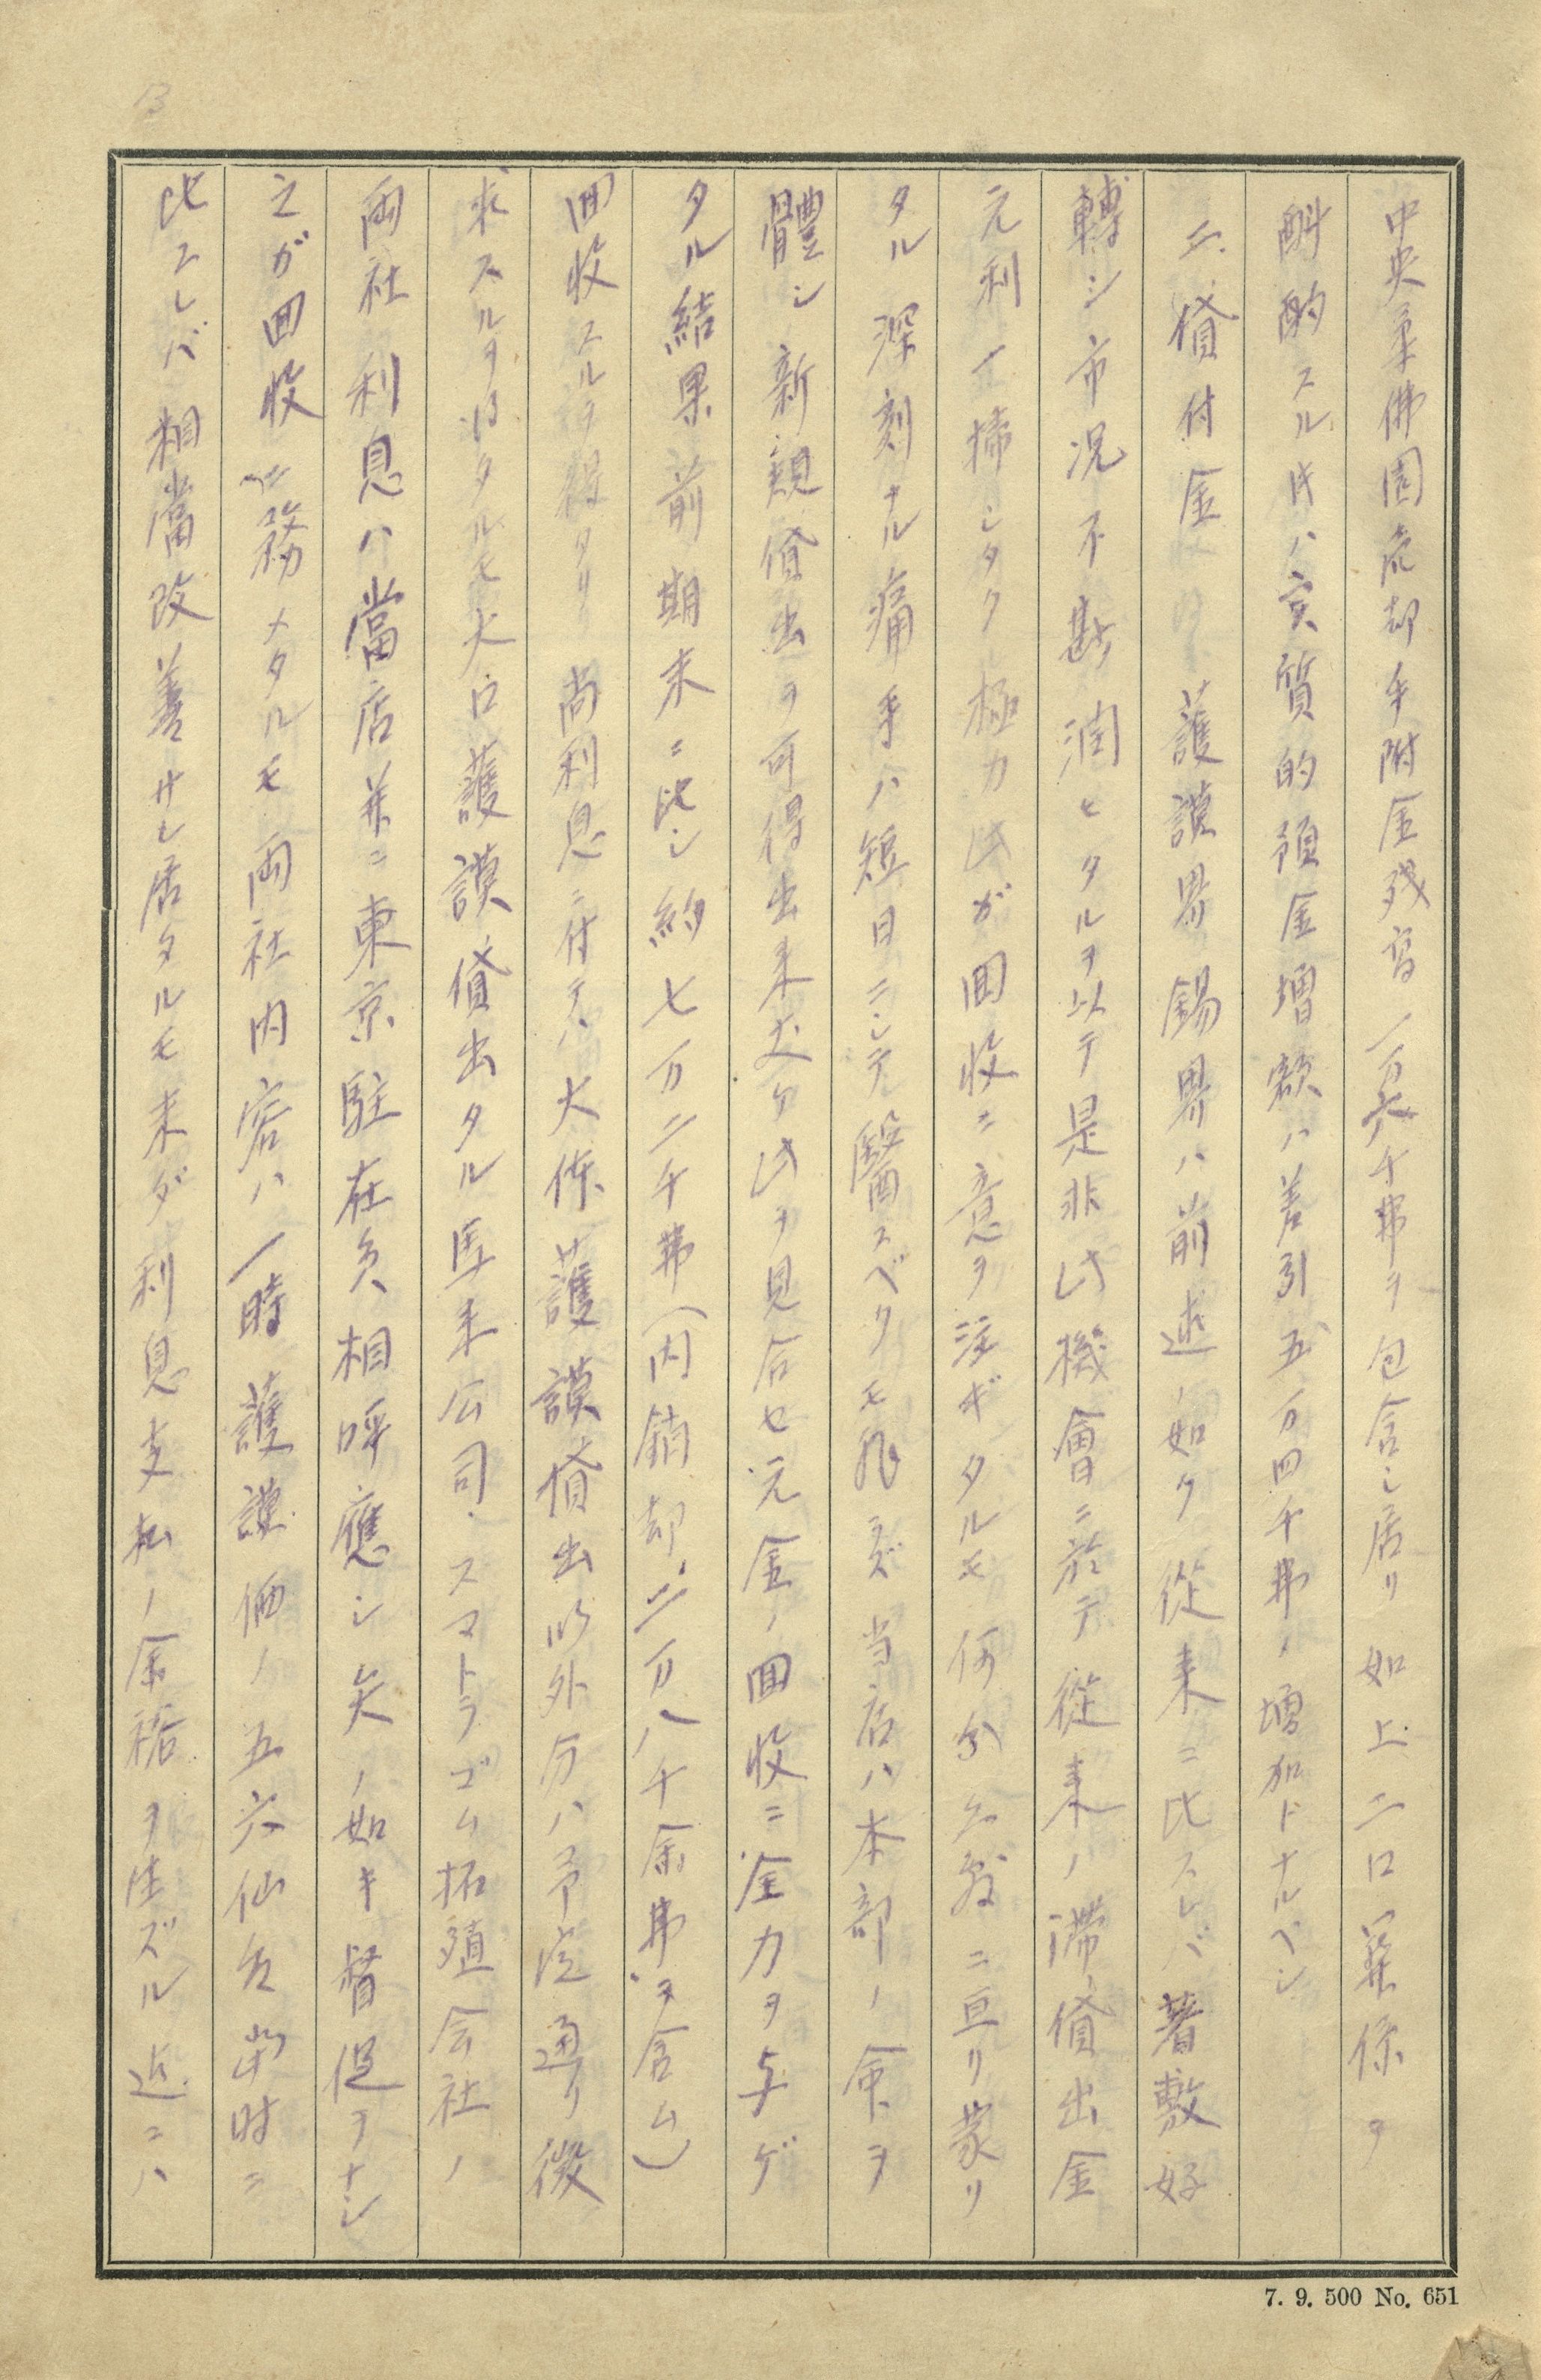 13
中央柔佛園売却手附金残高一万六千弗ヲ包含シ居リ如上二口関係ヲ
酙酌スル時ハ実質的預金増額ハ差引五万四千弗ノ増加トナルベシ
二、貸付金 護謨界錫界ハ前述ノ如ク従来ニ比スレバ著敷好
轉シ市況不斷潤ヒタルヲ以テ是非此機會ニ於テ従来ノ滞貸出金
元利一掃シタク極力此ガ回收ニ意ヲ注ギタルモ何分ニ亘リ蒙リ
タル深刻ナル痛手ハ短日ニシテ醫スベクモ非ラズ当店ハ本部ノ命ヲ
體シ新規貸出ヲ可得出来丈ケ此ヲ見合セ元金ノ回收ニ全力ヲ与ゲ
タル結果前期末ニ比シ約七万二千弗(内銷却二万八千余弗ヲ含ム)
回收スルヲ得タリ 尚利息ニ付テハ大体護謨貸出以外ノ分ハ予定通リ徴
求スルヲ得タルモ大口護謨貸出タル馬来公司、スマトラゴム拓殖会社ノ
両社利息ハ當店並ニ東京駐在員相呼應シ矢ノ如キ督促ヲナシ
之ガ回收ニ務メタルモ両社内容ハ一時護謨価ノ五六仙台当時ニ
比スレバ相當改善サレ居タルモ未ダ利息支払ノ余裕ヲ生ズル迄ニハ
7. 9. 500 No. 651